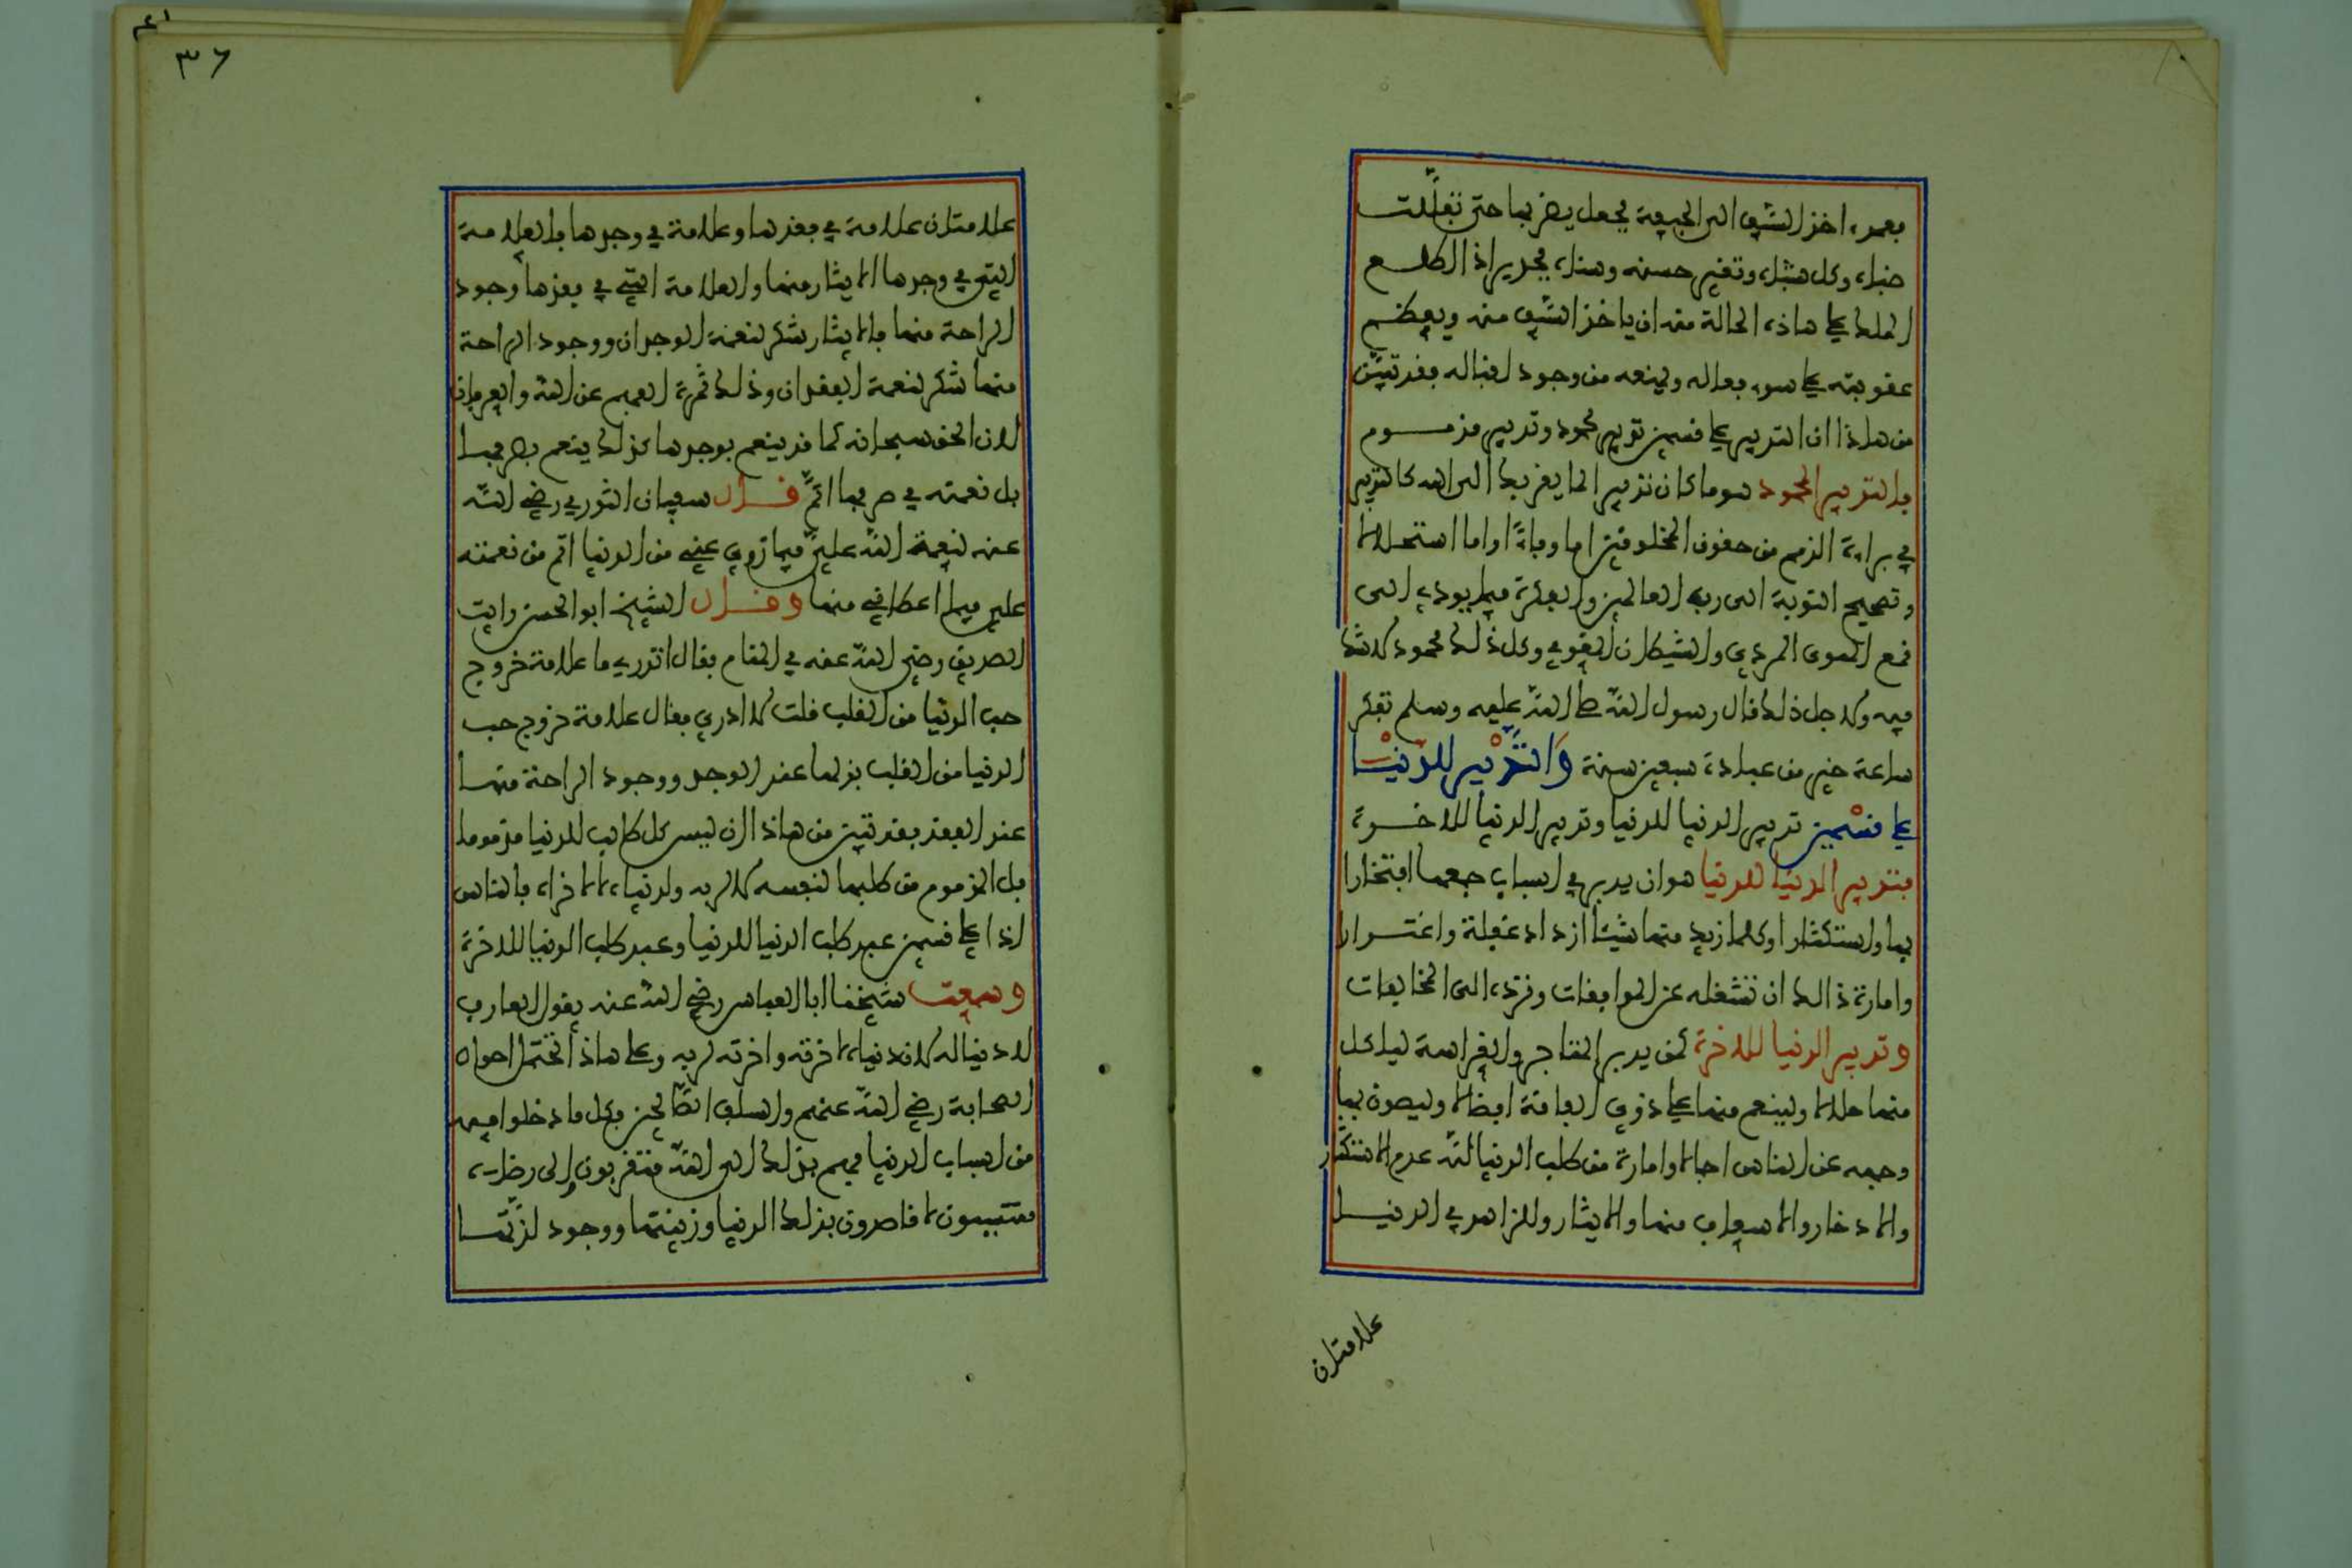 بعمد، اخذ السيف الى الجيفة فجعل يضرب بها حتى تفللت
ضباه وكل شباه وتغير حسنه وسناه فجدير اذا اطلع
الملك على هاذه الحالة منه ان ياخذ السيف منه ويعظم
عقوبته على سوء فعاله ويمنعه من وجود اقباله فقد تبين
من هاذا ان التدبير على قسمين تدبير محمود وتدبير مذموم
فالتدبير المحمود هو ما كان تدبيرا لما يقربك الى الله كالتدبير
في براءة الذمم من حقوق المخلوقين اما وفاءً او اما استحلالا
وتصحيح التوبة الى رب العالمين والفكرة فيما يودي الى
قمع الهوى المردي والشيطان المغوي وكل ذلك محمود لا شك
فيه ولاجل ذلك قال رسول الله صلى الله عليه وسلم تفكر
ساعة خير من عبادة سبعين سنة وَالتَّدْبير للدُّنْيَا
على قسْمين تدبير الدنيا للدنيا وتدبير الدنيا للاخرة
فتدبير الدنيا للدنيا هو ان يدبر في اسباب جمعها افتخارا
بها واستكثارا وكلما زيد منها شيئا ازداد غفلة واغترارا
وامارة ذالك ان تشغله عن الموافقات وترده الى المخالفات
وتدبير الدنيا للاخرة كمن يدبر المتاجر والغراسة لياكل
منها حلالا ولينعم منها على ذوي الفاقة افضالا وليصون بها
وجهه عن الناس اجمالا وامارة من طلب الدنيا لله عدم الاستكثار
والادخار والاسعاف منها والايثار وللزاهد في الدنيا
علامتان
٣٦
علامتان علامة في فقدها وعلامة في وجدها فالعلامة
التي في وجدها الايثار منها والعلامة التي في فقدها وجود
الراحة منها فالايثار شكر لنعمة الوجدان ووجود الراحة
منها شكر لنعمة الفقدان وذلك ثمرة الفهم عن الله والعرفان
لان الحق سبحانه كما قد ينعم بوجدها كذلك ينعم بصرفها
بل نعمته في صرفها اتمّ قال سفيان الثوري رضي الله
عنه لنعمة الله عليّ فيما زوى عني من الدنيا اتم من نعمته
علي فيما اعطاني منها وقال الشيخ ابو الحسن رايت
الصديق رضي الله عنه في المنام فقال اتدري ما علامة خروج
حب الدنيا من القلب قلت لا ادري فقال علامة خروج حب
الدنيا من القلب بذلها عند الوجد ووجود الراحة منها
عند الفقد فقد تبين من هاذا ان ليس كل طالب للدنيا مذموما
بل المذموم من طلبها لنفسه لا لربه ولدنياه لا لاخراه فالناس
اذا على قسمين عبد طلب الدنيا للدنيا وعبد طلب الدنيا للاخرة
وسمعت شيخنا ابا العباس رضي الله عنه يقول العارف
لا دنيا له لان دنياه لاخرته واخرته لربه وعلى هاذا تحتمل احوال
الصحابة رضي الله عنهم والسلف الصّالحين فكل ما دخلوا فيه
من اسباب الدنيا فهم بذلك الى الله متقربون والى رضاه
متسببون لا قاصدون بذلك الدنيا وزينتها ووجود لذّتها